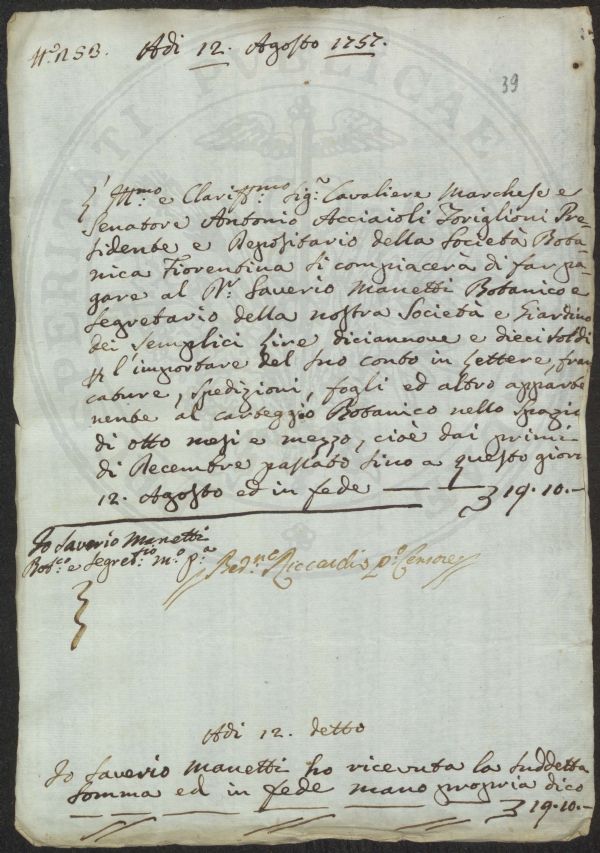 Adi 12. Agosto 1757.
39
L'Ill.mo e Clariss.mo Sig.r Cavaliere Marchese e
Senatore Antonio Acciaioli Toriglioni Pre-
sidente e Depositario della Società Bota-
nica Fiorentina si compiacerà di far pa-
gare al Dr. Saverio Manetti Botanico e
Segretario della nostra Società e Giardino
dei Semplici Lire diciannove e dieci soldi
p l'importare del suo conto in Lettere, fran
cature, spedizioni, fogli ed altro apparte
nente al carteggio Botanico nello spazio
di otto mesi e mezzo, cioè dai primi
di Decembre passato sino a questo giorn
12. Agosto ed in fede — 19.10.-
Io Saverio Manetti
Bot.co e Segret.io m.o p.a
Bed.ne Riccardi p.o Censore
Adi 12. detto
Io Saverio Manetti ho ricevuta la suddetta
somma ed in fede mano propria dico
19.10.-
PERITATI PVBLICAE